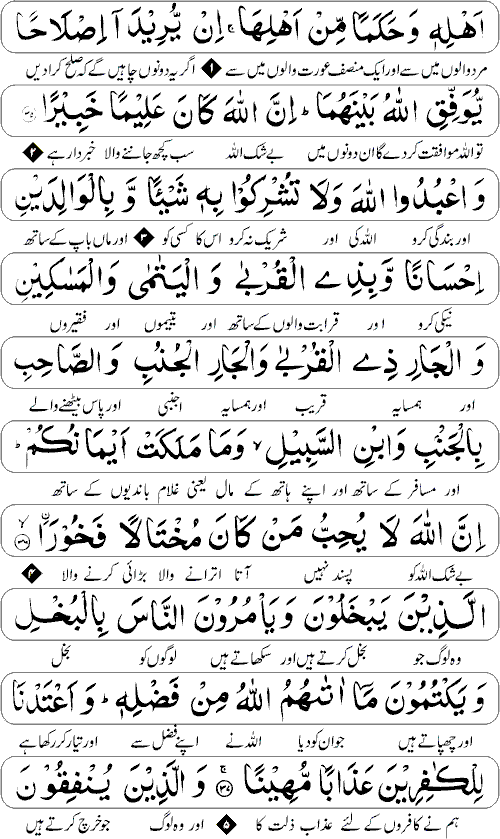 اَهْلِهٖ وَحَكَمًا مِّنْ اَهْلِهَا ۚ اِنْ يُّرِيْدَاۤ اِصْلَاحًا
مرد والوں میں سے اور ایک منصف عورت والوں میں سے ۱ اگر یہ دونوں چاہیں گے کہ صلح کرا دیں
يُّوَفِّقِ اللّٰهُ بَيْنَهُمَا ؕ اِنَّ اللّٰهَ كَانَ عَلِيْمًا خَبِيْرًا ۳۵
تو اللہ موافقت کر دے گا ان دونوں میں بے شک اللہ سب کچھ جاننے والا خبردار ہے ۲
وَاعْبُدُوا اللّٰهَ وَلَا تُشْرِكُوْا بِهٖ شَيْـًٔا وَّ بِالْوَالِدَيْنِ
اور بندگی کرو اللہ کی اور شریک نہ کرو اس کا کسی کو ۳ اور ماں باپ کے ساتھ
اِحْسَانًا وَّ بِذِے الْقُرْبٰى وَ الْيَتٰمٰى وَالْمَسٰكِيْنِ
نیکی کرو اور قرابت والوں کے ساتھ اور یتیموں اور فقیروں
وَ الْجَارِ ذِے الْقُرْبٰى وَالْجَارِ الْجُنُبِ وَالصَّاحِبِ
اور ہمسایہ قریب اور ہمسایہ اجنبی اور پاس بیٹھنے والے
بِالْجَنْۢبِ وَابْنِ السَّبِيْلِ ۙ وَمَا مَلَكَتْ اَيْمَانُكُمْ ؕ
اور مسافر کے ساتھ اور اپنے ہاتھ کے مال یعنی غلام باندیوں کے ساتھ
اِنَّ اللّٰهَ لَا يُحِبُّ مَنْ كَانَ مُخْتَالًا فَخُوْرَاۨ ۙ ۳۶
بے شک اللہ کو پسند نہیں آتا اترانے والا بڑائی کرنے والا ۴
الَّذِيْنَ يَبْخَلُوْنَ وَيَاْمُرُوْنَ النَّاسَ بِالْبُخْلِ
وہ لوگ جو بخل کرتے ہیں اور سکھاتے ہیں لوگوں کو بخل
وَيَكْتُمُوْنَ مَاۤ اٰتٰهُمُ اللّٰهُ مِنْ فَضْلِهٖ ؕ وَ اَعْتَدْنَا
اور چھپاتے ہیں جو ان کو دیا اللہ نے اپنے فضل سے اور تیار کر رکھا ہے
لِلْكٰفِرِيْنَ عَذَابًا مُّهِيْنًا ۚ ۳۷ وَ الَّذِيْنَ يُنْفِقُوْنَ
ہم نے کافروں کے لئے عذاب ذلت کا ۵ اور وہ لوگ جو خرچ کرتے ہیں